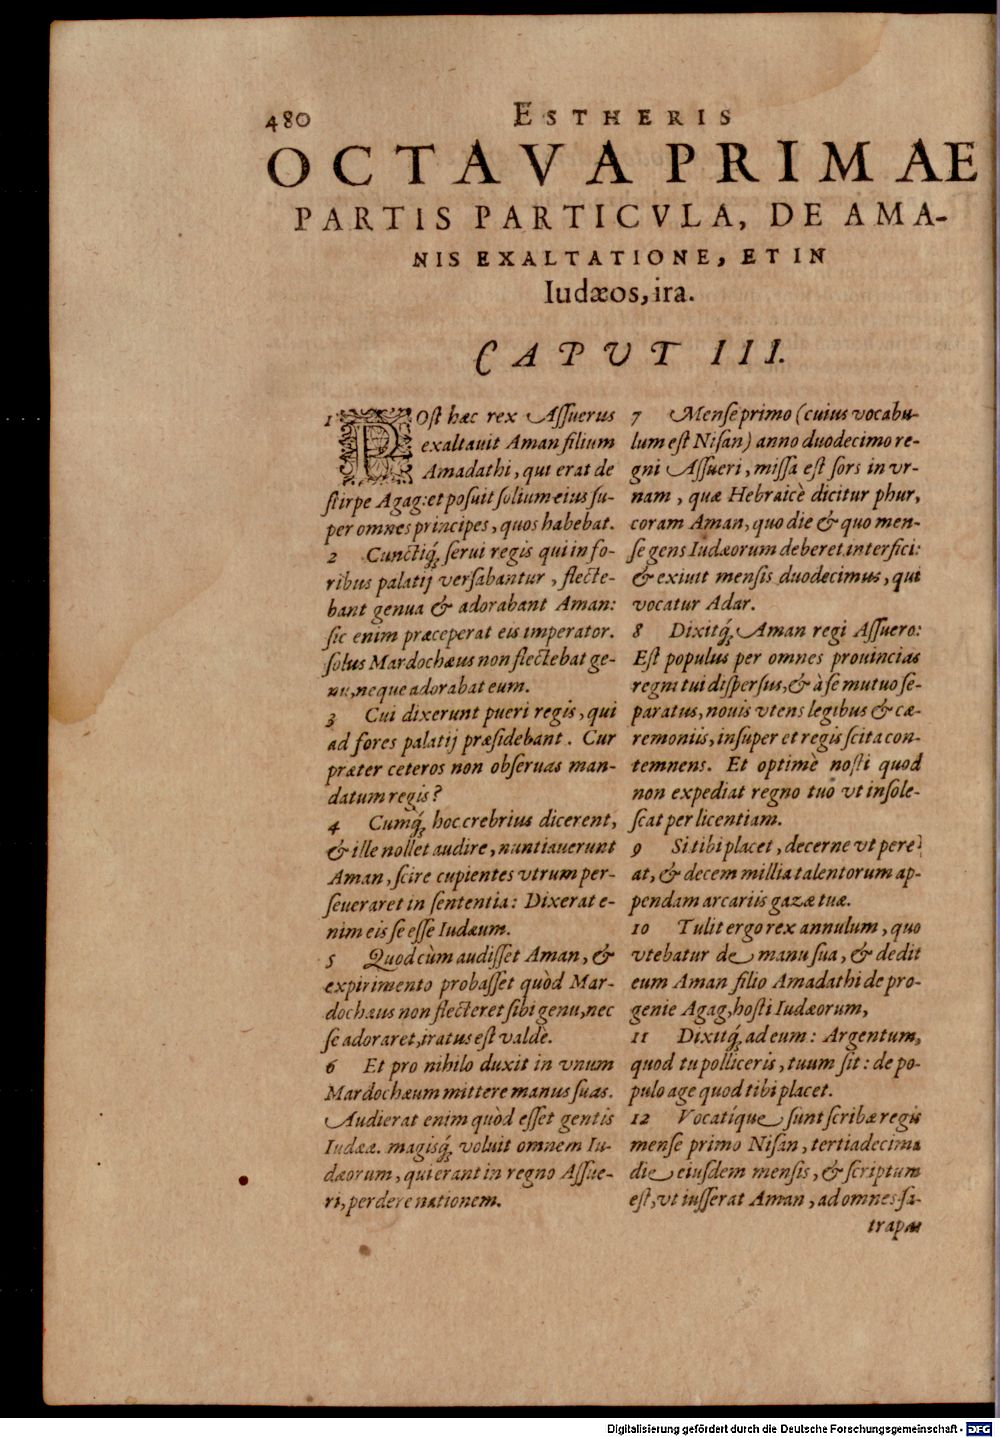 480
ESTHERIS
OCTAVA PRIMAE
PARTIS PARTICVLA, DE AMA-
NIS EXALTATIONE, ET IN
Iudæos, ira.
CAPUT III.
1 POſt hæc rex Aſſuerus
exaltauit Aman filium
Amadathi, qui erat de
ſtirpe Agag: et poſuit ſolium eius ſu-
per omnes principes, quos habebat.
2 Cunctiq́; ſerui regis qui in fo-
ribus palatij verſabantur, flecte-
bant genua & adorabant Aman:
ſic enim præceperat eis imperator.
ſolus Mardochæus non flectebat ge-
nu, neque adorabat eum.
3 Cui dixerunt pueri regis, qui
ad fores palatij præſidebant. Cur
præter ceteros non obſeruas man-
datum regis?
4 Cumq́; hoc crebrius dicerent,
& ille nollet audire, nuntiauerunt
Aman, ſcire cupientes vtrum per-
ſeueraret in ſententia: Dixerat e-
nim eis ſe eſſe Iudæum.
5 Quod cùm audiſſet Aman, &
expirimento probaſſet quòd Mar-
dochæus non flecteret ſibi genu, nec
ſe adoraret, iratus eſt valdè.
6 Et pro nihilo duxit in vnum
Mardochæum mittere manus ſuas.
Audierat enim quòd eſſet gentis
Iudææ. magisq́; voluit omnem Iu-
dæorum, qui erant in regno Aſſue-
ri, perdere nationem.
7 Menſe primo (cuius vocabu-
lum eſt Niſan) anno duodecimo re-
gni Aſſueri, miſſa eſt ſors in vr-
nam, quæ Hebraicè dicitur phur,
coram Aman, quo die & quo men-
ſe gens Iudæorum deberet interfici:
& exiuit menſis duodecimus, qui
vocatur Adar.
8 Dixitq́; Aman regi Aſſuero:
Eſt populus per omnes prouincias
regni tui diſperſus, & à ſe mutuo ſe-
paratus, nouis vtens legibus & cæ-
remoniis, inſuper et regis ſcita con-
temnens. Et optimè noſti quod
non expediat regno tuo vt inſole-
ſcat per licentiam.
9 Si tibi placet, decerne vt pere
at, & decem millia talentorum ap-
pendam arcariis gazæ tuæ.
10 Tulit ergo rex annulum, quo
vtebatur de manu ſua, & dedit
eum Aman filio Amadathi de pro-
genie Agag, hoſti Iudæorum,
11 Dixitq́; ad eum: Argentum,
quod tu polliceris, tuum ſit: de po-
pulo age quod tibi placet.
12 Vocatíque ſunt ſcribæ regis
menſe primo Niſan, tertiadecima
die eiuſdem menſis, & ſcriptum
eſt, vt iuſſerat Aman, ad omnes ſa-
trapas
Digitalisierung gefördert durch die Deutsche Forschungsgemeinschaft - DFG